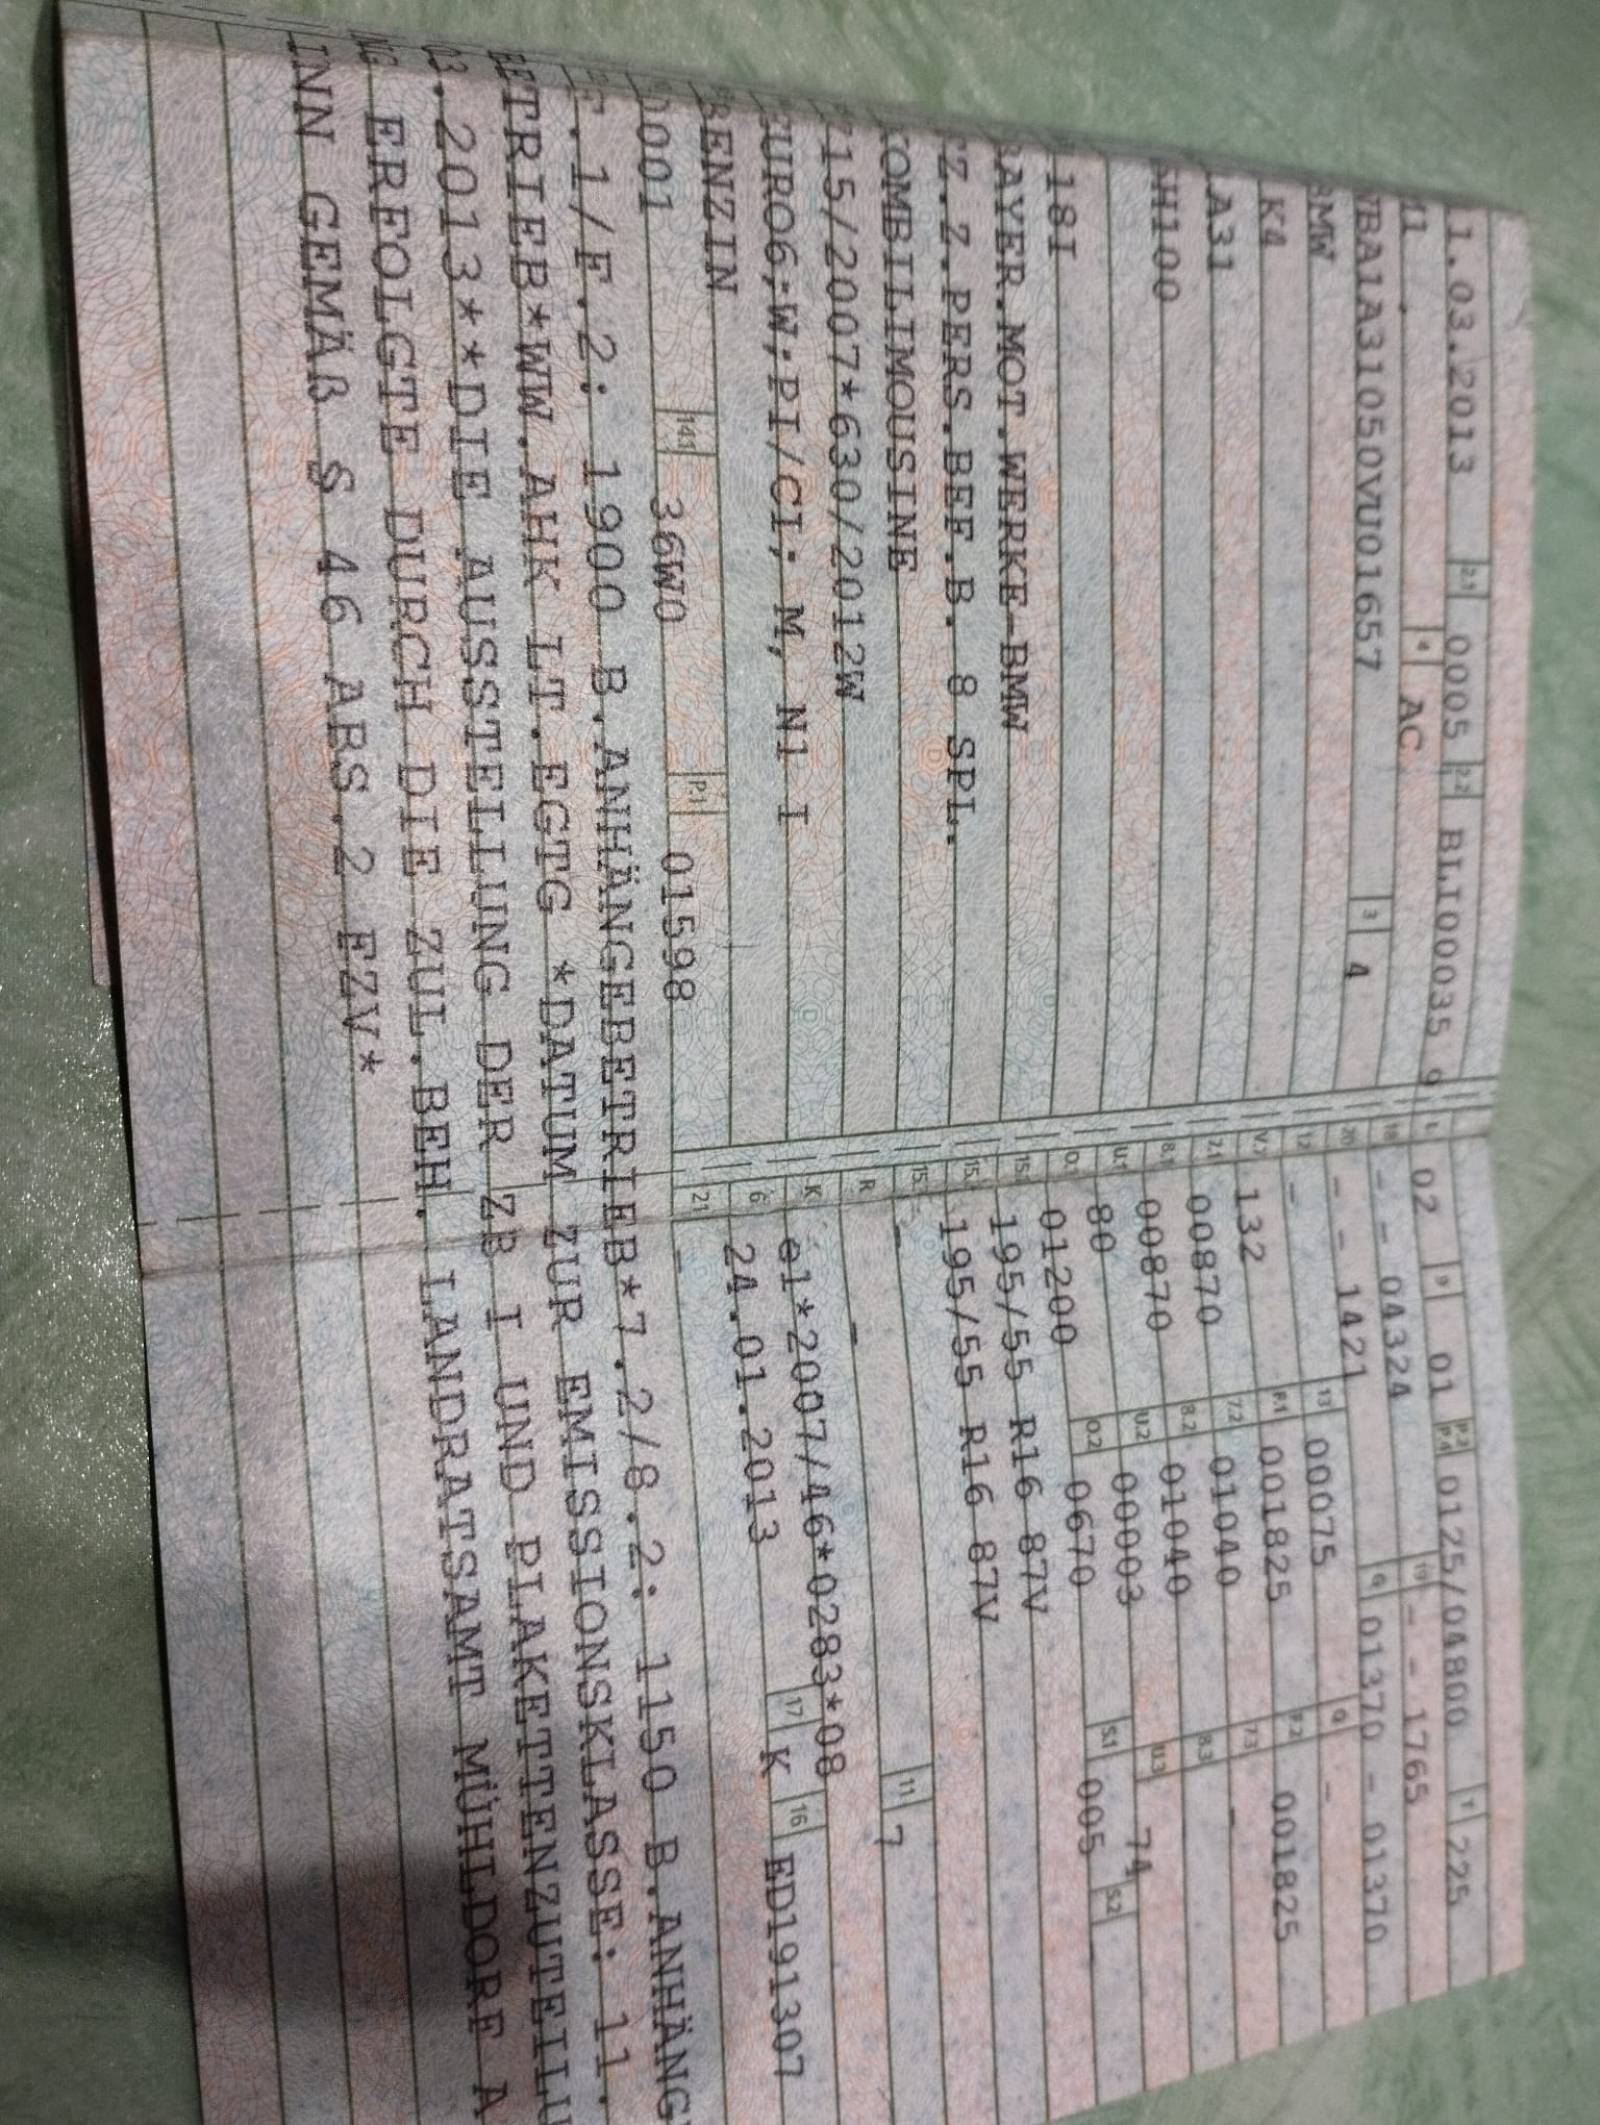 1.03.2013 2.1 0005 2.2 BLI00035 9
M1 4 AC
WBA1A31050VU01657 3 4
BMW
K4
A31
5H100
118I
BAYER.MOT.WERKE-BMW
FZ.Z.PERS.BEF.B. 8 SPL.
KOMBILIMOUSINE
715/2007*630/2012W
EURO6;W;PI/CI; M, N1 I
BENZIN
0001 14.1 36W0 P.1 01598
L 02 9 01 P.2 P.4 0125/04800 T 225
18 - - 04324 19 - - 1765
20 - - 1421 G 01370 - 01370
12 - 13 00075 Q -
V.7 132 F.1 001825 F.2 001825
7.1 00870 7.2 01040 7.3 -
8.1 00870 8.2 01040 8.3
U.1 80 U.2 00003 U.3 74
O.1 01200 O.2 0670 S.1 005 S.2
15.1 195/55 R16 87V
15.2 195/55 R16 87V
15.3 -
R - 11 7
K e1*2007/46*0283*08
6 24.01.2013 17 K 16 ED191307
21 -
F.1/F.2: 1900 B.ANHÄNGEBETRIEB*7.2/8.2: 1150 B.ANHÄNG
ETRIEB*WW.AHK LT.EGTG *DATUM ZUR EMISSIONSKLASSE: 11.
03.2013**DIE AUSSTELLUNG DER ZB I UND PLAKETTENZUTEILU
NG ERFOLGTE DURCH DIE ZUL.BEH. LANDRATSAMT MÜHLDORF A
INN GEMÄß § 46 ABS.2 FZV*